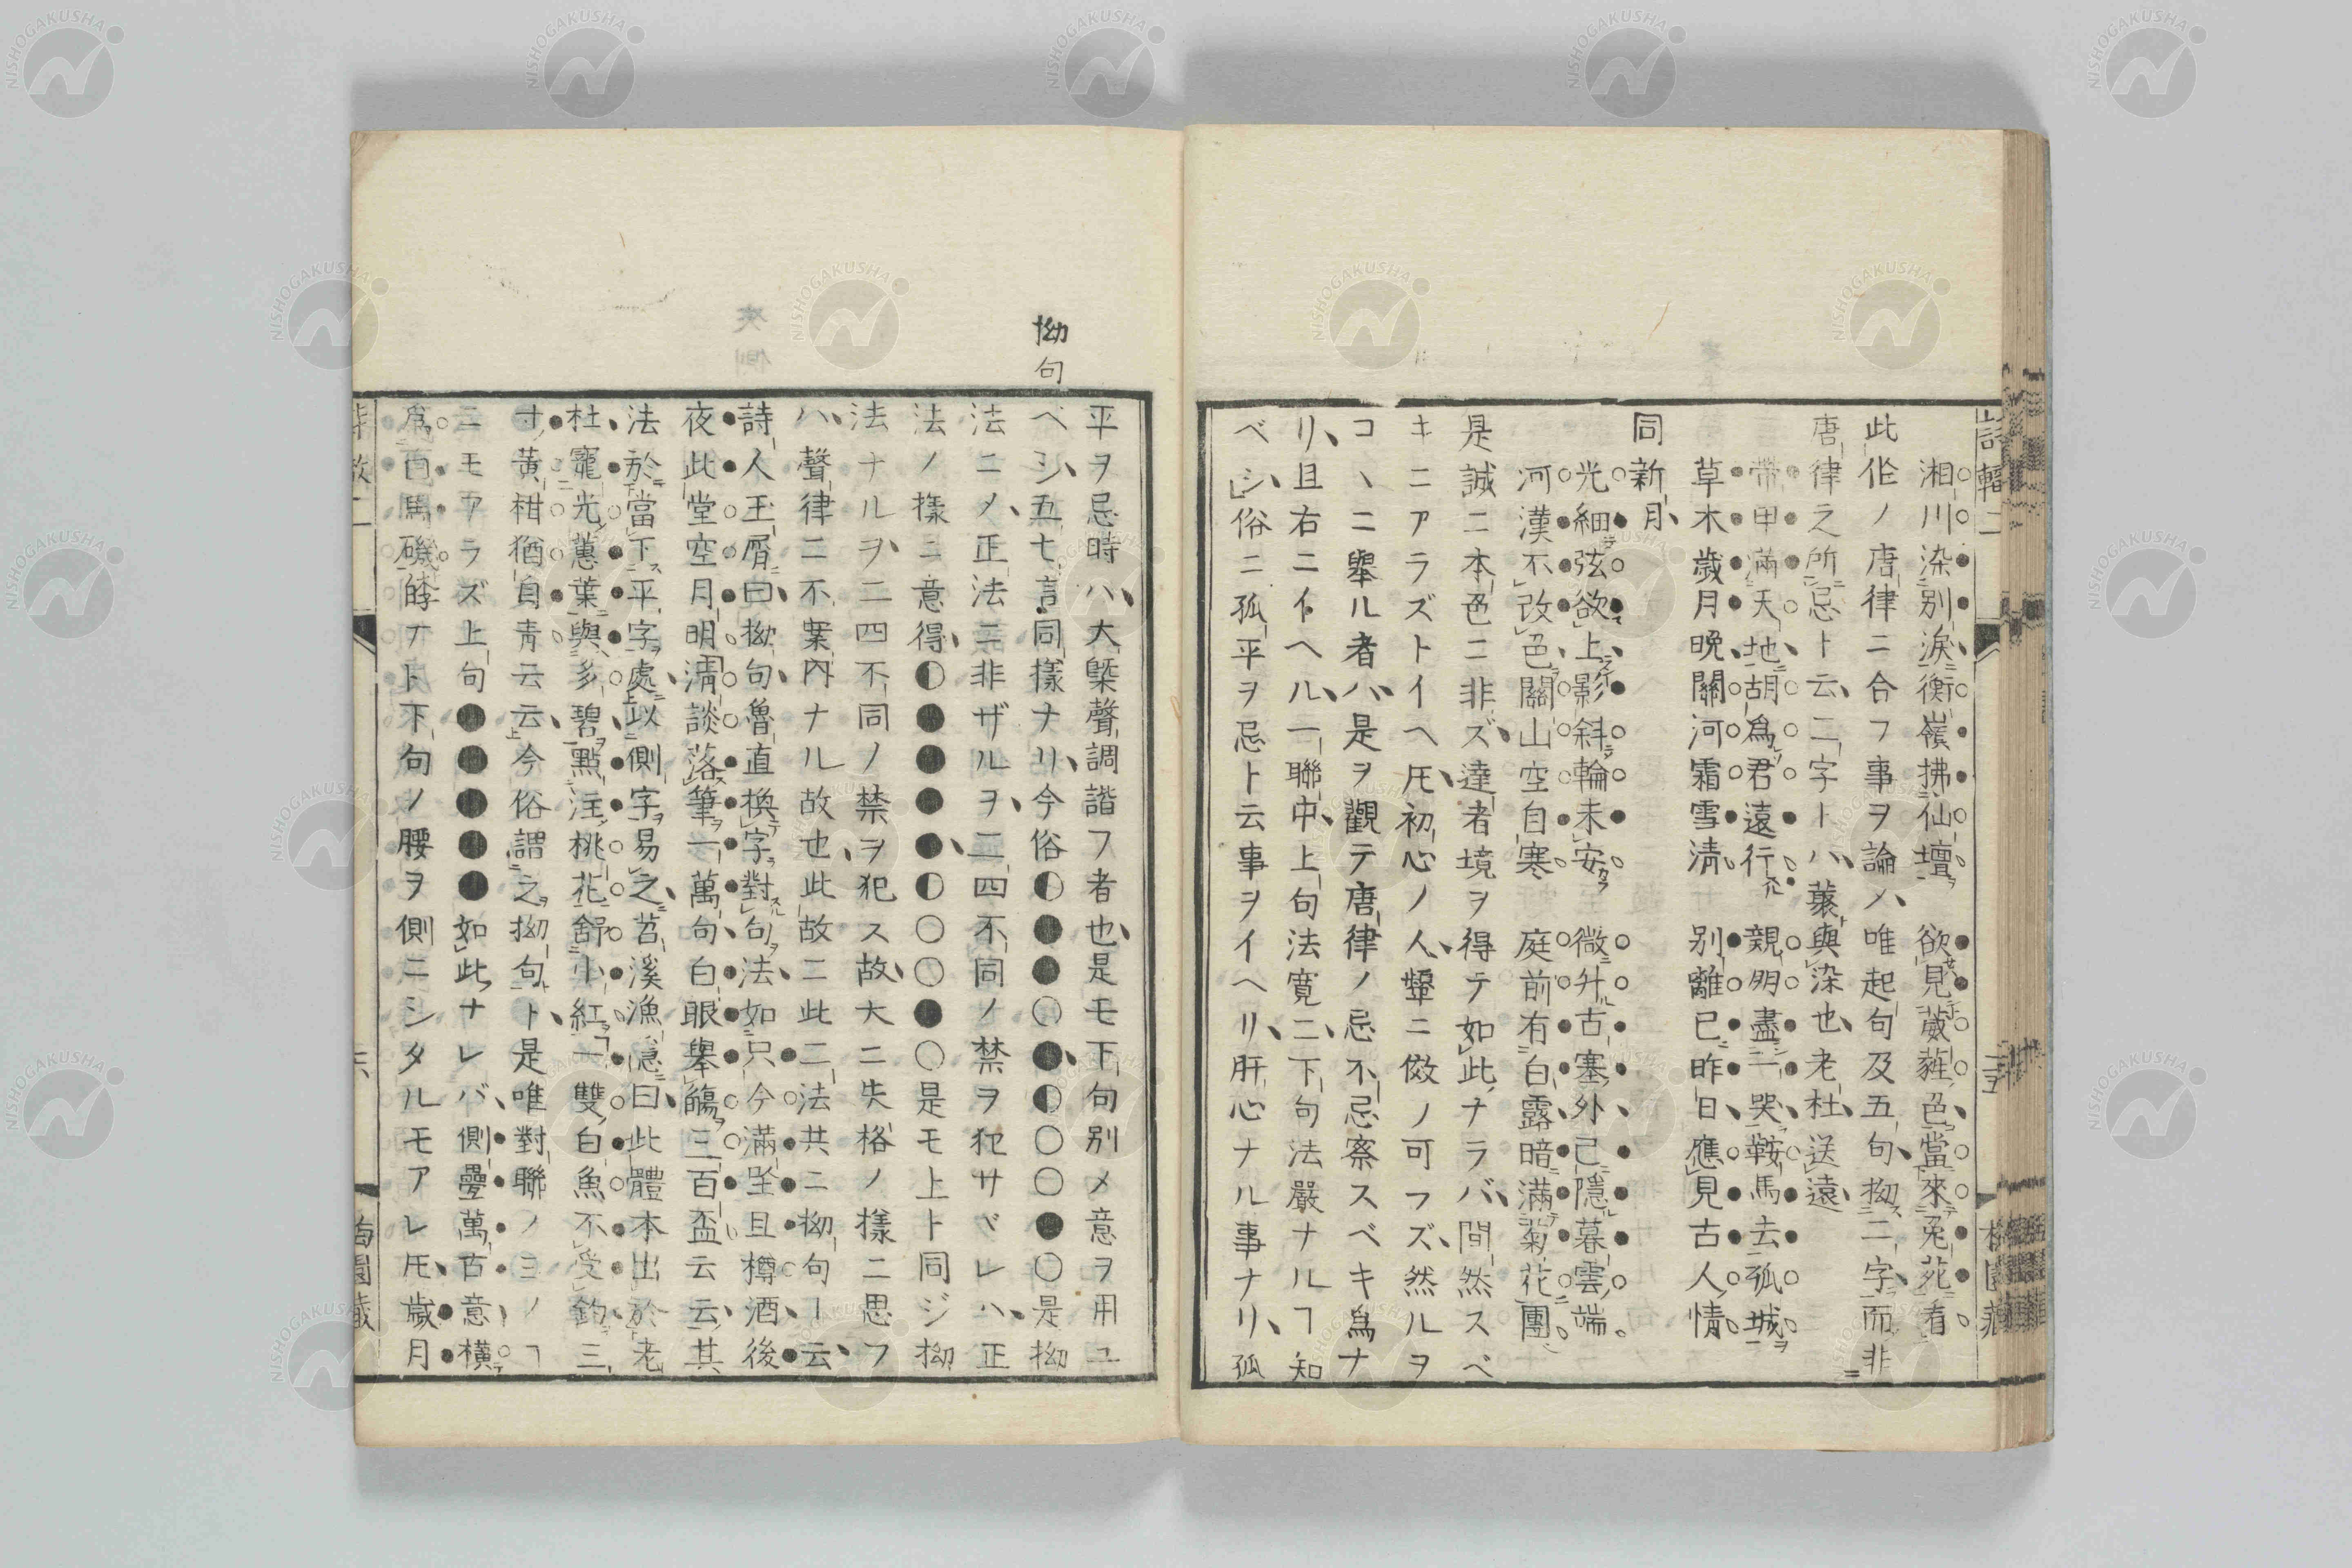 湘川染別淚衡嶺拂仙壇　欲見葳蕤色當來兎苑看
此作ノ唐律ニ合フ事ヲ論メ唯起句及五句拗二字而非
唐律之所忌ト云二字トハ蕤與染也老杜送遠
帶甲滿天地胡爲君遠行　親朋盡一哭鞍馬去孤城
草木歲月晚關河霜雪清　別離已昨日應見古人情
同新月
光細弦欲上影斜輪未安　微升古塞外已隱暮雲端
河漢不改色關山空自寒　庭前有白露暗滿菊花團
是誠ニ本色ニ非ズ達者境ヲ得テ如此ナラバ間然スベ
キニアラズトイヘ𪜈初心ノ人顰ニ傚ノ可フズ然ルヲ
コヽニ舉ル者ハ是ヲ觀テ唐律ノ忌不忌察スベキ爲ナ
リ且右ニイヘル一聯中上句法寬ニ下句法嚴ナルヿ知
ベシ俗ニ孤平ヲ忌ト云事ヲイヘリ肝心ナル事ナリ孤
拗句
平ヲ忌時ハ大槩聲調諧フ者也是モ下句別メ意ヲ用ユ
ベシ五七言同樣ナリ今俗◐●●○●◐○○●○是拗
法ニメ正法ニ非ザルヲ二四不同ノ禁ヲ犯サベレハ正
法ノ樣ニ意得◐●●●●◐○○●○是モ上ト同ジ拗
法ナルヲ二四不同ノ禁ヲ犯ス故大ニ失格ノ樣ニ思フ
ハ聲律ニ不案內ナル故也此故ニ此二法共ニ拗句ト云
詩人玉屑曰拗句魯直換字對句法如只今滿坐且樽酒後
夜此堂空月明清談落筆一萬句白眼舉觴三百盃云云其
法於當下平字處以側字易之苕溪漁隱曰此體本出於老
杜寵光蕙葉與多碧點注桃花舒小紅一雙白魚不受釣三
寸黃柑猶自靑云云今俗謂之拗句ト是唯對聯ノヨノヿ
ニモアラズ上句●●●●●如此ナレバ側疊萬古意橫
爲白馬磯餑ナト下句ノ腰ヲ側ニシタルモアレ𪜈歲月